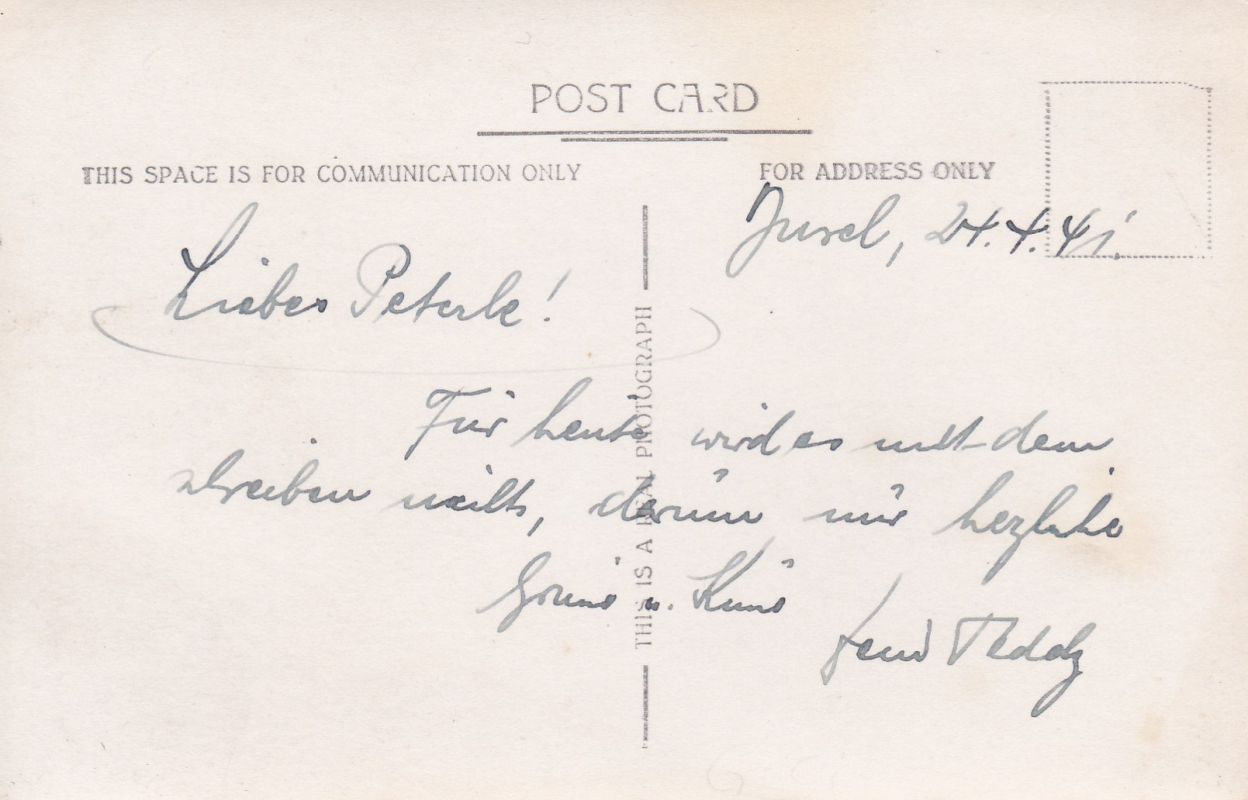 POST CARD
THIS SPACE IS FOR COMMUNICATION ONLY
FOR ADDRESS ONLY
Insel, 24.4.41.
Liebes Peterle!
Für heute wird es mit dem
schreiben nichts, darum nur herzliche
Grüße u. Küße
Dein Teddy
THIS IS A REAL PHOTOGRAPH